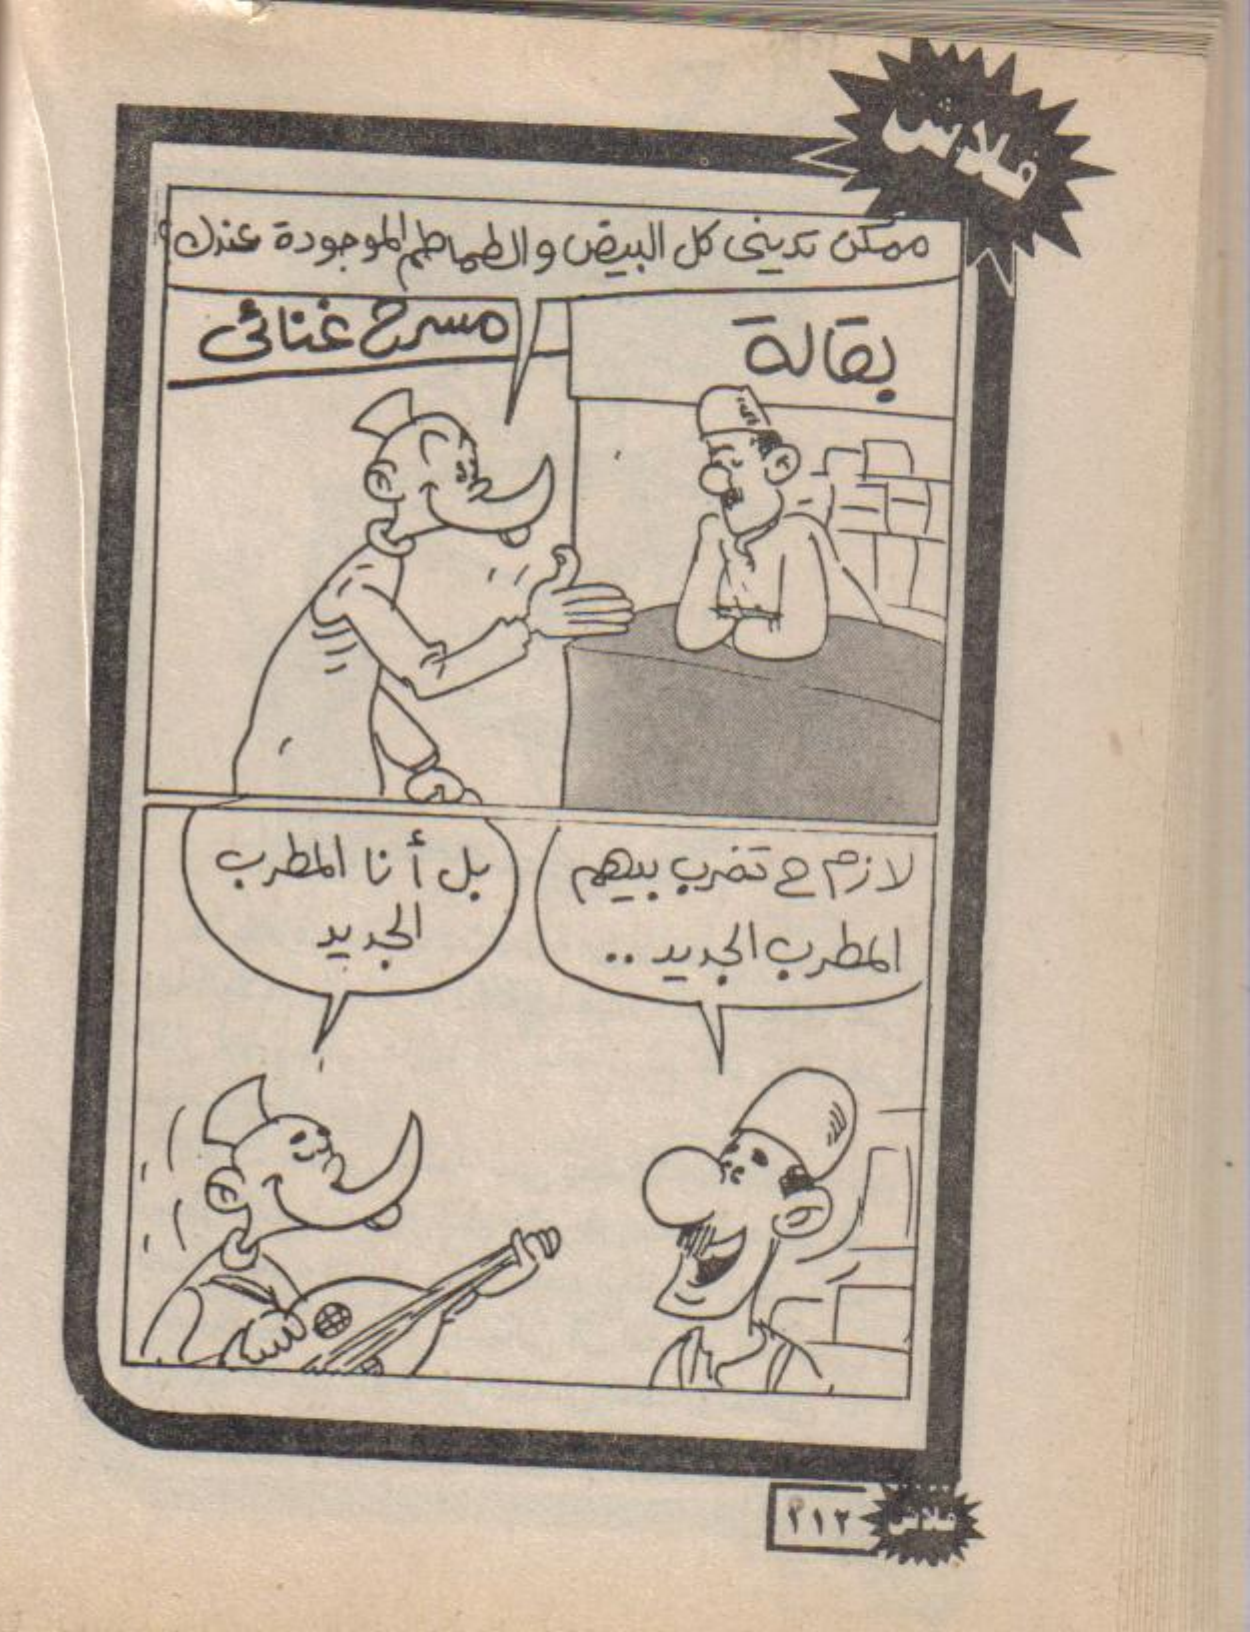 فلاش
ممكن تديني كل البيض والطماطم الموجودة عندك؟
بقالة
مسرح غنائى
لازم ح تضرب بيهم
المطرب الجديد ..
بل أنا المطرب
الجديد
٢١٢
فلاش